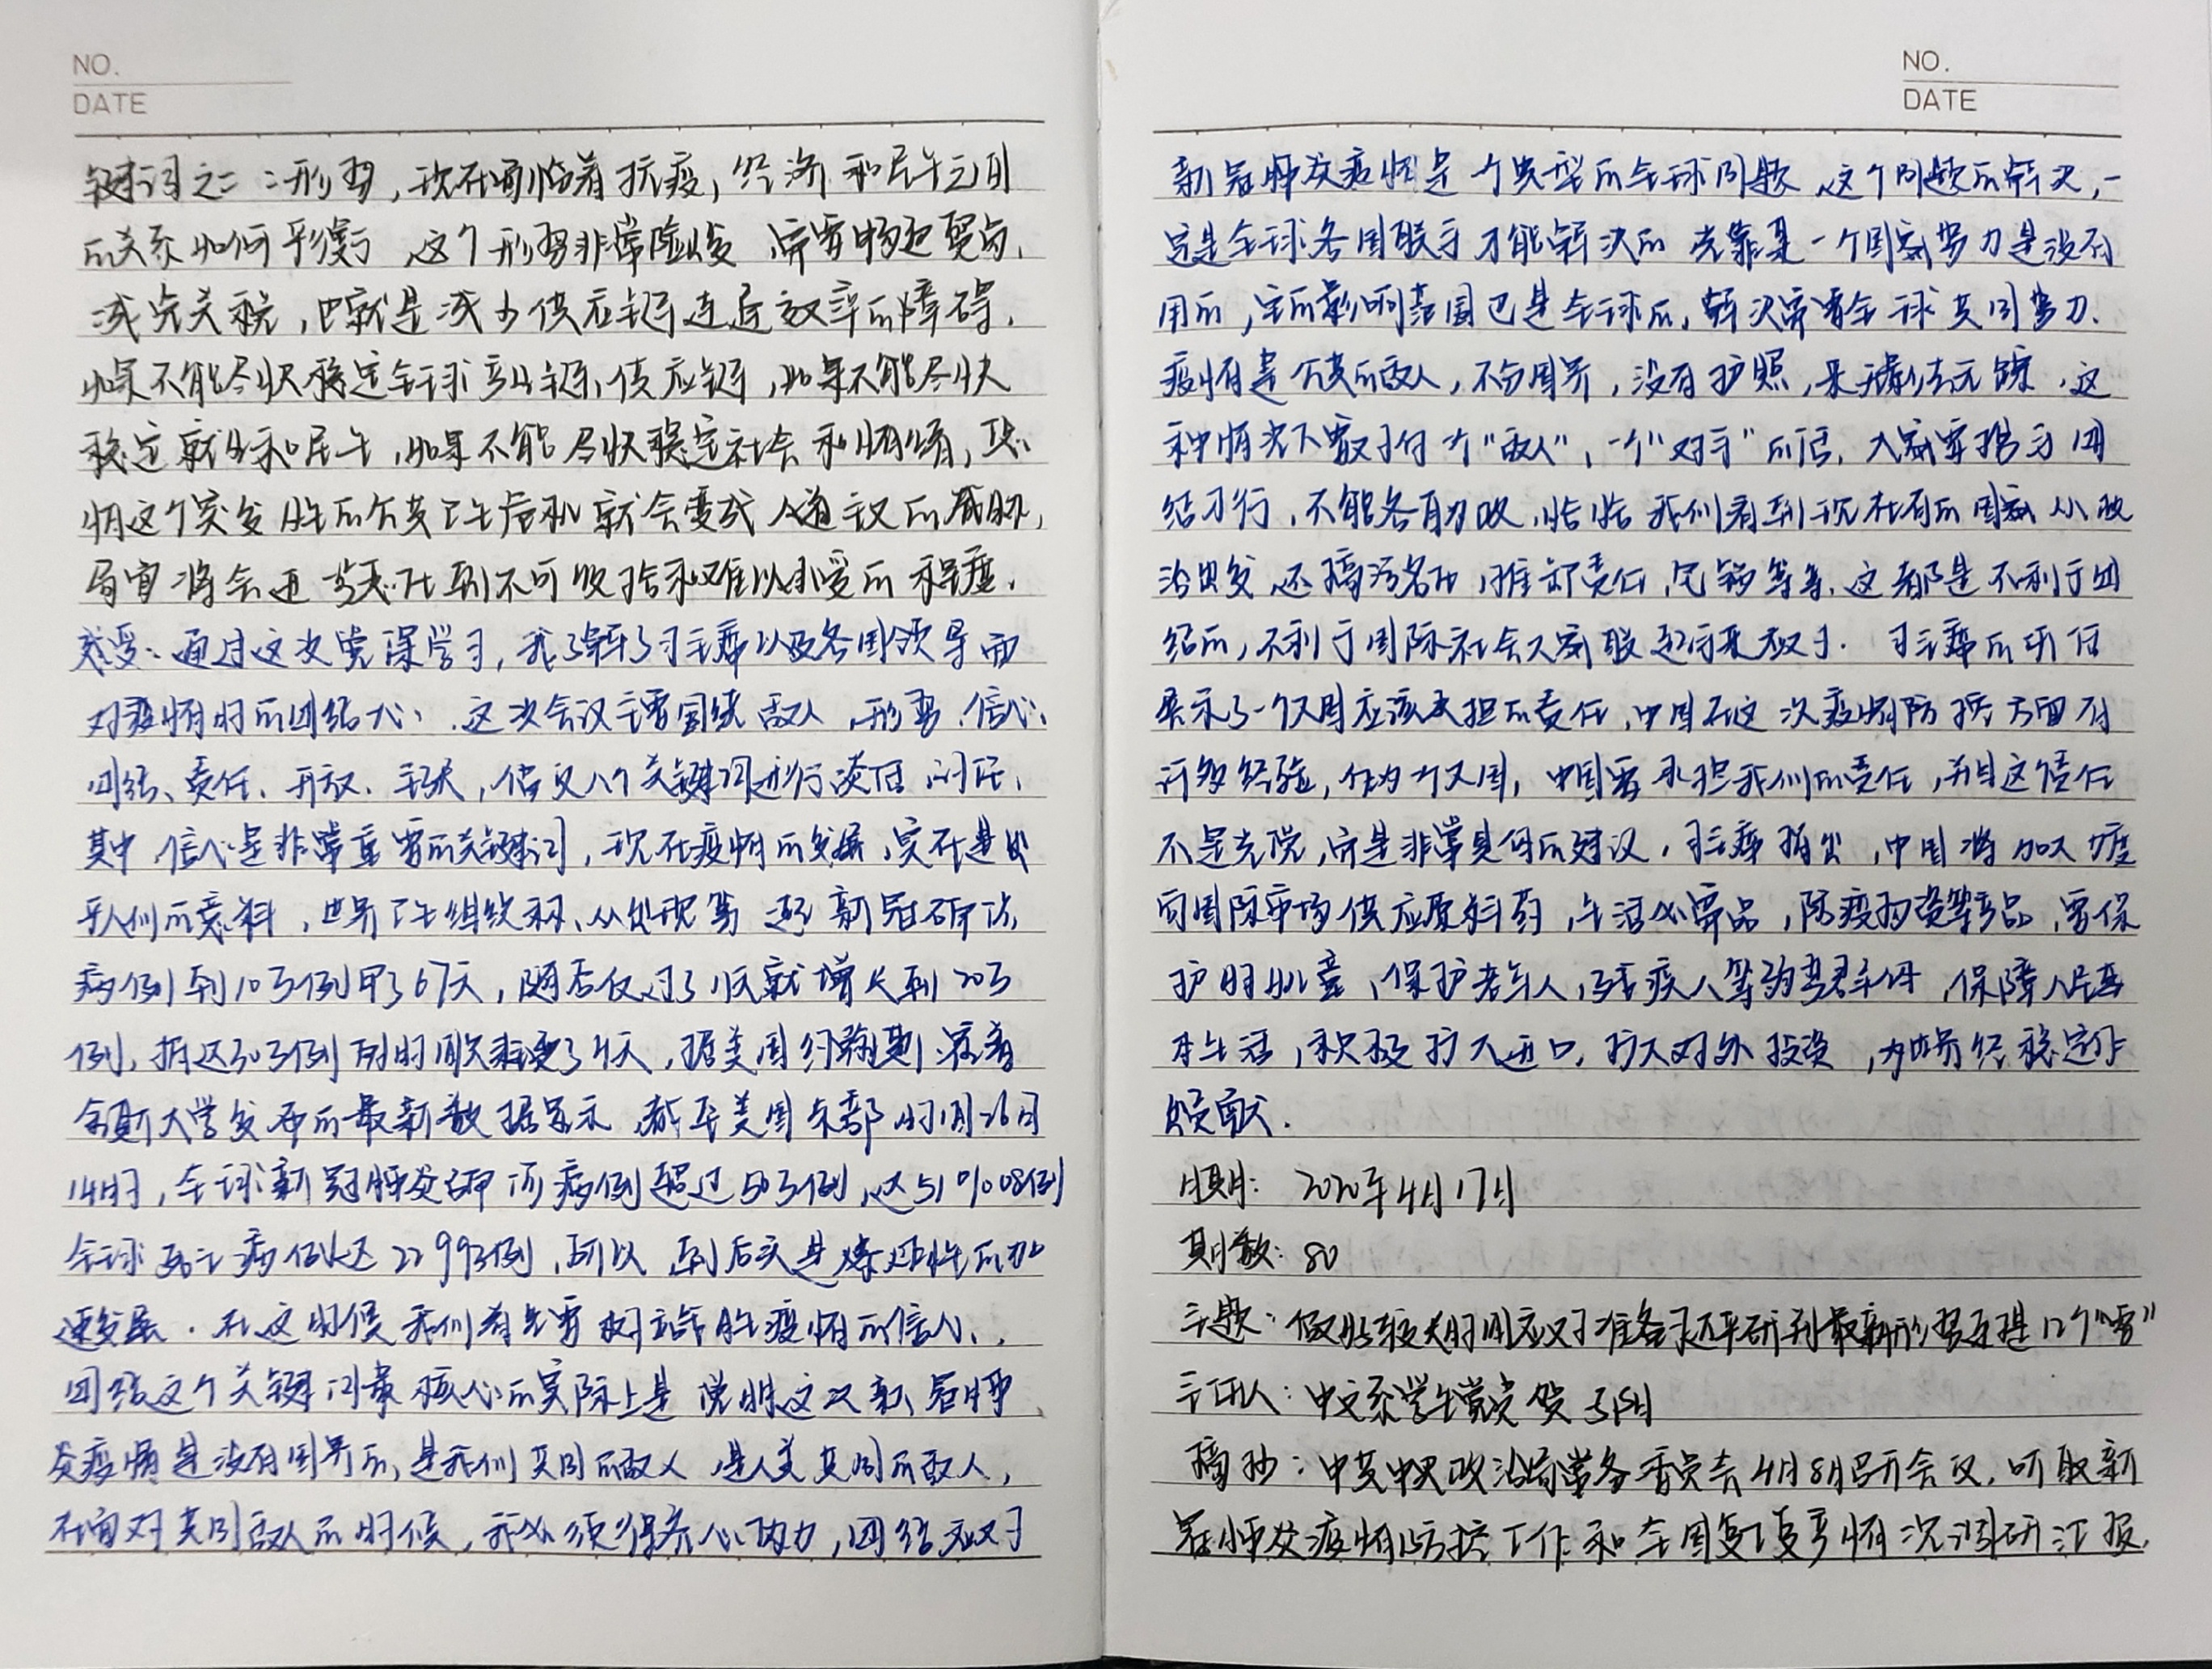 NO.
DATE
键词之二：形势，现在面临着抗疫，经济和民生之间
的关系如何平衡，这个形势非常险峻，需要协起契力，
减免关税，也就是减少供应链连通效率的障碍，
如果不能尽快稳定全球产业链、供应链，如果不能尽快
稳定就业和民生，如果不能尽快稳定社会和情绪，那
情这个突发性的公共卫生危机就会变成人道主义的威胁，
局面将会进一步恶化到不可收拾和难以承受的程度。
感受：通过这次党课学习，我了解了习主席以及各国领导面
对疫情时的团结一心，这次会议主要围绕敌人、形势、信心、
团结、责任、开放、主张，倡议八个关键词进行谈话讨论，
其中，信心是非常重要的关键词，现在疫情的发展，实在是出
乎人们的意料，世界卫生组织称，从出现第一例新冠确诊
病例到10万例用了67天，随后仅过了11天就增长到20万
例，拆达30万例所时间只需要了4天，据美国约翰斯·霍普
金斯大学发布的最新数据显示，截至美国东部时间3月26日
14时，全球新冠肺炎确诊病例超过50万例，达510108例
全球死亡病例达22993例，所以，到后头是爆炸性的加
速发展，在这时候我们首先要树立战胜疫情的信心，
团结这个关键词最核心的实际上是说明这次新冠肺
炎疫情是没有国界的，是我们共同的敌人，是人类共同的敌人，
在面对共同敌人的时候，我必须得齐心协力，团结应对
NO.
DATE
新冠肺炎疫情是一个典型的全球问题，这个问题的解决，一
定是全球各国联手才能解决的，光靠某一个国家努力是没有
用的，它的影响范围也是全球的，解决需要全球共同努力。
疫情是公共的敌人，不分国界，没有护照，来无影去无踪，这
种情况下要对付一个“敌人”，一个“对手”的话，大家要携手团
结才行，不能各自为政，恰恰我们看到现在有的国家从政
治出发，还搞污名化，推卸责任，甩锅等等，这都是不利于团
结的，不利于国际社会大家联起手来应对。习主席的讲话
展示了一个大国应该承担的责任，中国在这次疫情防控方面有
许多经验，作为一个大国，中国要承担我们的责任，并且这个责任
不是光说，而是非常具体的建议，习主席指出，中国将加大力度
向国际市场供应原料药，生活必需品，防疫物资等产品，要保
护妇女儿童，保护老年人，残疾人等弱势群体，保障人民基
本生活，积极扩大进口，扩大对外投资，为世界经济稳定作
贡献。
日期：2020年4月17日
期数：80
主题：做好较长时间应对准备习近平研判最新形势再提12个“要”
主讲人：中文系学生党员贺子阳
摘抄：中共中央政治局常务委员会4月8日召开会议，听取新
冠肺炎疫情防控工作和全国复工复产情况调研汇报，